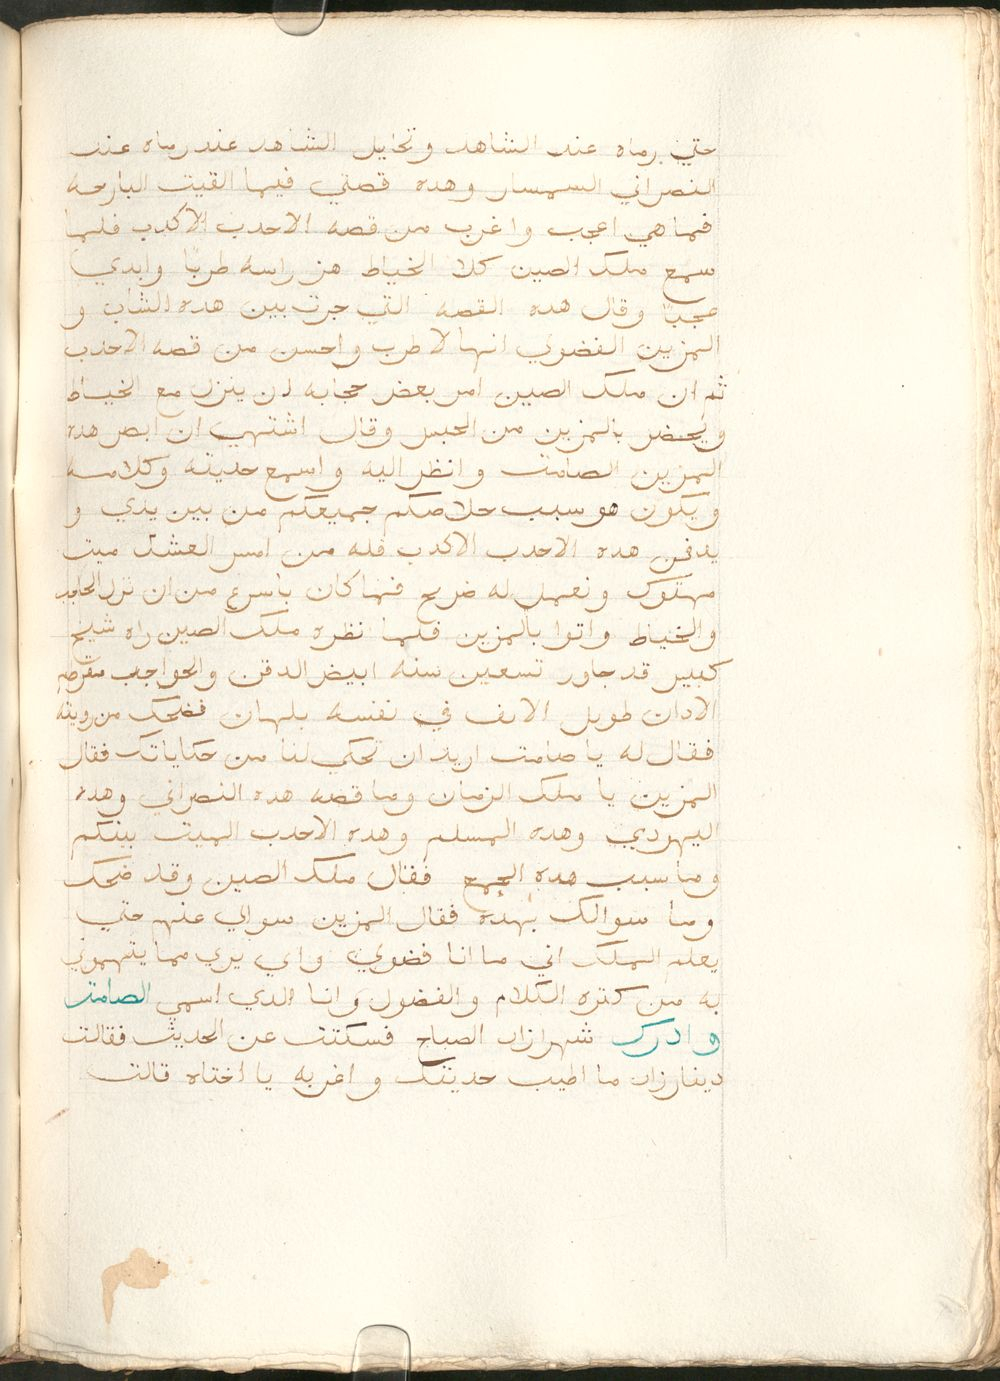 حتي رماه عند الشاهد وتحايل الشاهد عند رماه عند
النصراني السمسار وهده قصتي فيما القيت البارحه
فما هي اعجب واغرب من قصه الاحدب الاكدب فلما
سمع ملك الصين كلا الخياط هز راسه طربًا وابدي
عجبًا وقال هده القصه التي جرت بين هده الشاب و
المزين الفضولي انها لاطرب واحسن من قصه الاحدب
ثم ان ملك الصين امر بعض حجابه ان ينزل مع الخياط
ويحضر بالمزين من الحبس وقال اشتهي ان ابصر هده
المزين الصامت وانظر اليه واسمع حديته وكلامه
ويكون هو سبب خلاصكم جميعكم من بين يدي و
يدفن هده الاحدب الاكدب فله من امس العشا ميت
مهتوك ونعمل له ضريح فما كان باسرع من ان نزل الحاجب
والخياط واتوا بالمزين فلما نظره ملك الصين راه شيخ
كبير قد جاور تسعين سنه ابيض الدقن والحواجب مقرطم
الادان طويل الانف في نفسه بلهان فضحك من رويته
فقال له يا صامت اريد ان تحكي لنا من حكاياتك فقال
المزين يا ملك الزمان وما قصه هده النصراني وهده
اليهودي وهده المسلم وهده الاحدب الميت بينكم
وما سبب هده الجمع فقال ملك الصين وقد ضحك
وما سوالك بهده فقال المزين سوالي عنهم حتي
يعلم الملك اني ما انا فضولي واني بري مما يتهموني
به من كتره الكلام والفضول وانا الدي اسمي الصامت
وادرك شهرازاد الصباح فسكتت عن الحديث فقالت
دينارزاد ما اطيب حديتك واغربه يا اختاه قالت